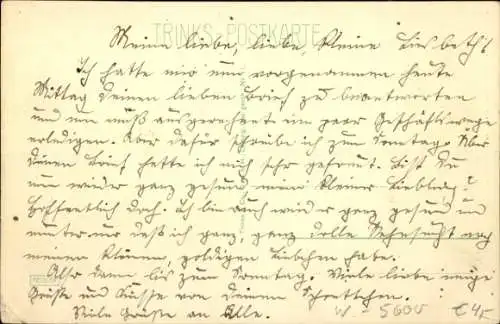 TRINKS-POSTKARTE
Meine liebe, liebe, kleine Lisbeth!
Ich hatte mir nun vorgenommen heute
Mittag deinen lieben Brief zu beantworten
und nun muß ausgerechnet ein paar Geschäftswege
erledigen. Aber dafür schreibe ich zum Sonntag. Über
deinen Brief hatte ich mich sehr gefreut. Bist Du
nun wieder ganz gesund, mein kleiner Liebling?
Hoffentlich doch. Ich bin auch wieder ganz gesund und
munter nur daß ich ganz, ganz dolle Sehnsucht nach
meinem kleinen, goldigen Liebchen habe.
Also dann bis zum Sonntag. Viele liebe innige
Grüße und Küsse von deinem
Viele Grüße an Alle.
W - 5600 €4,-